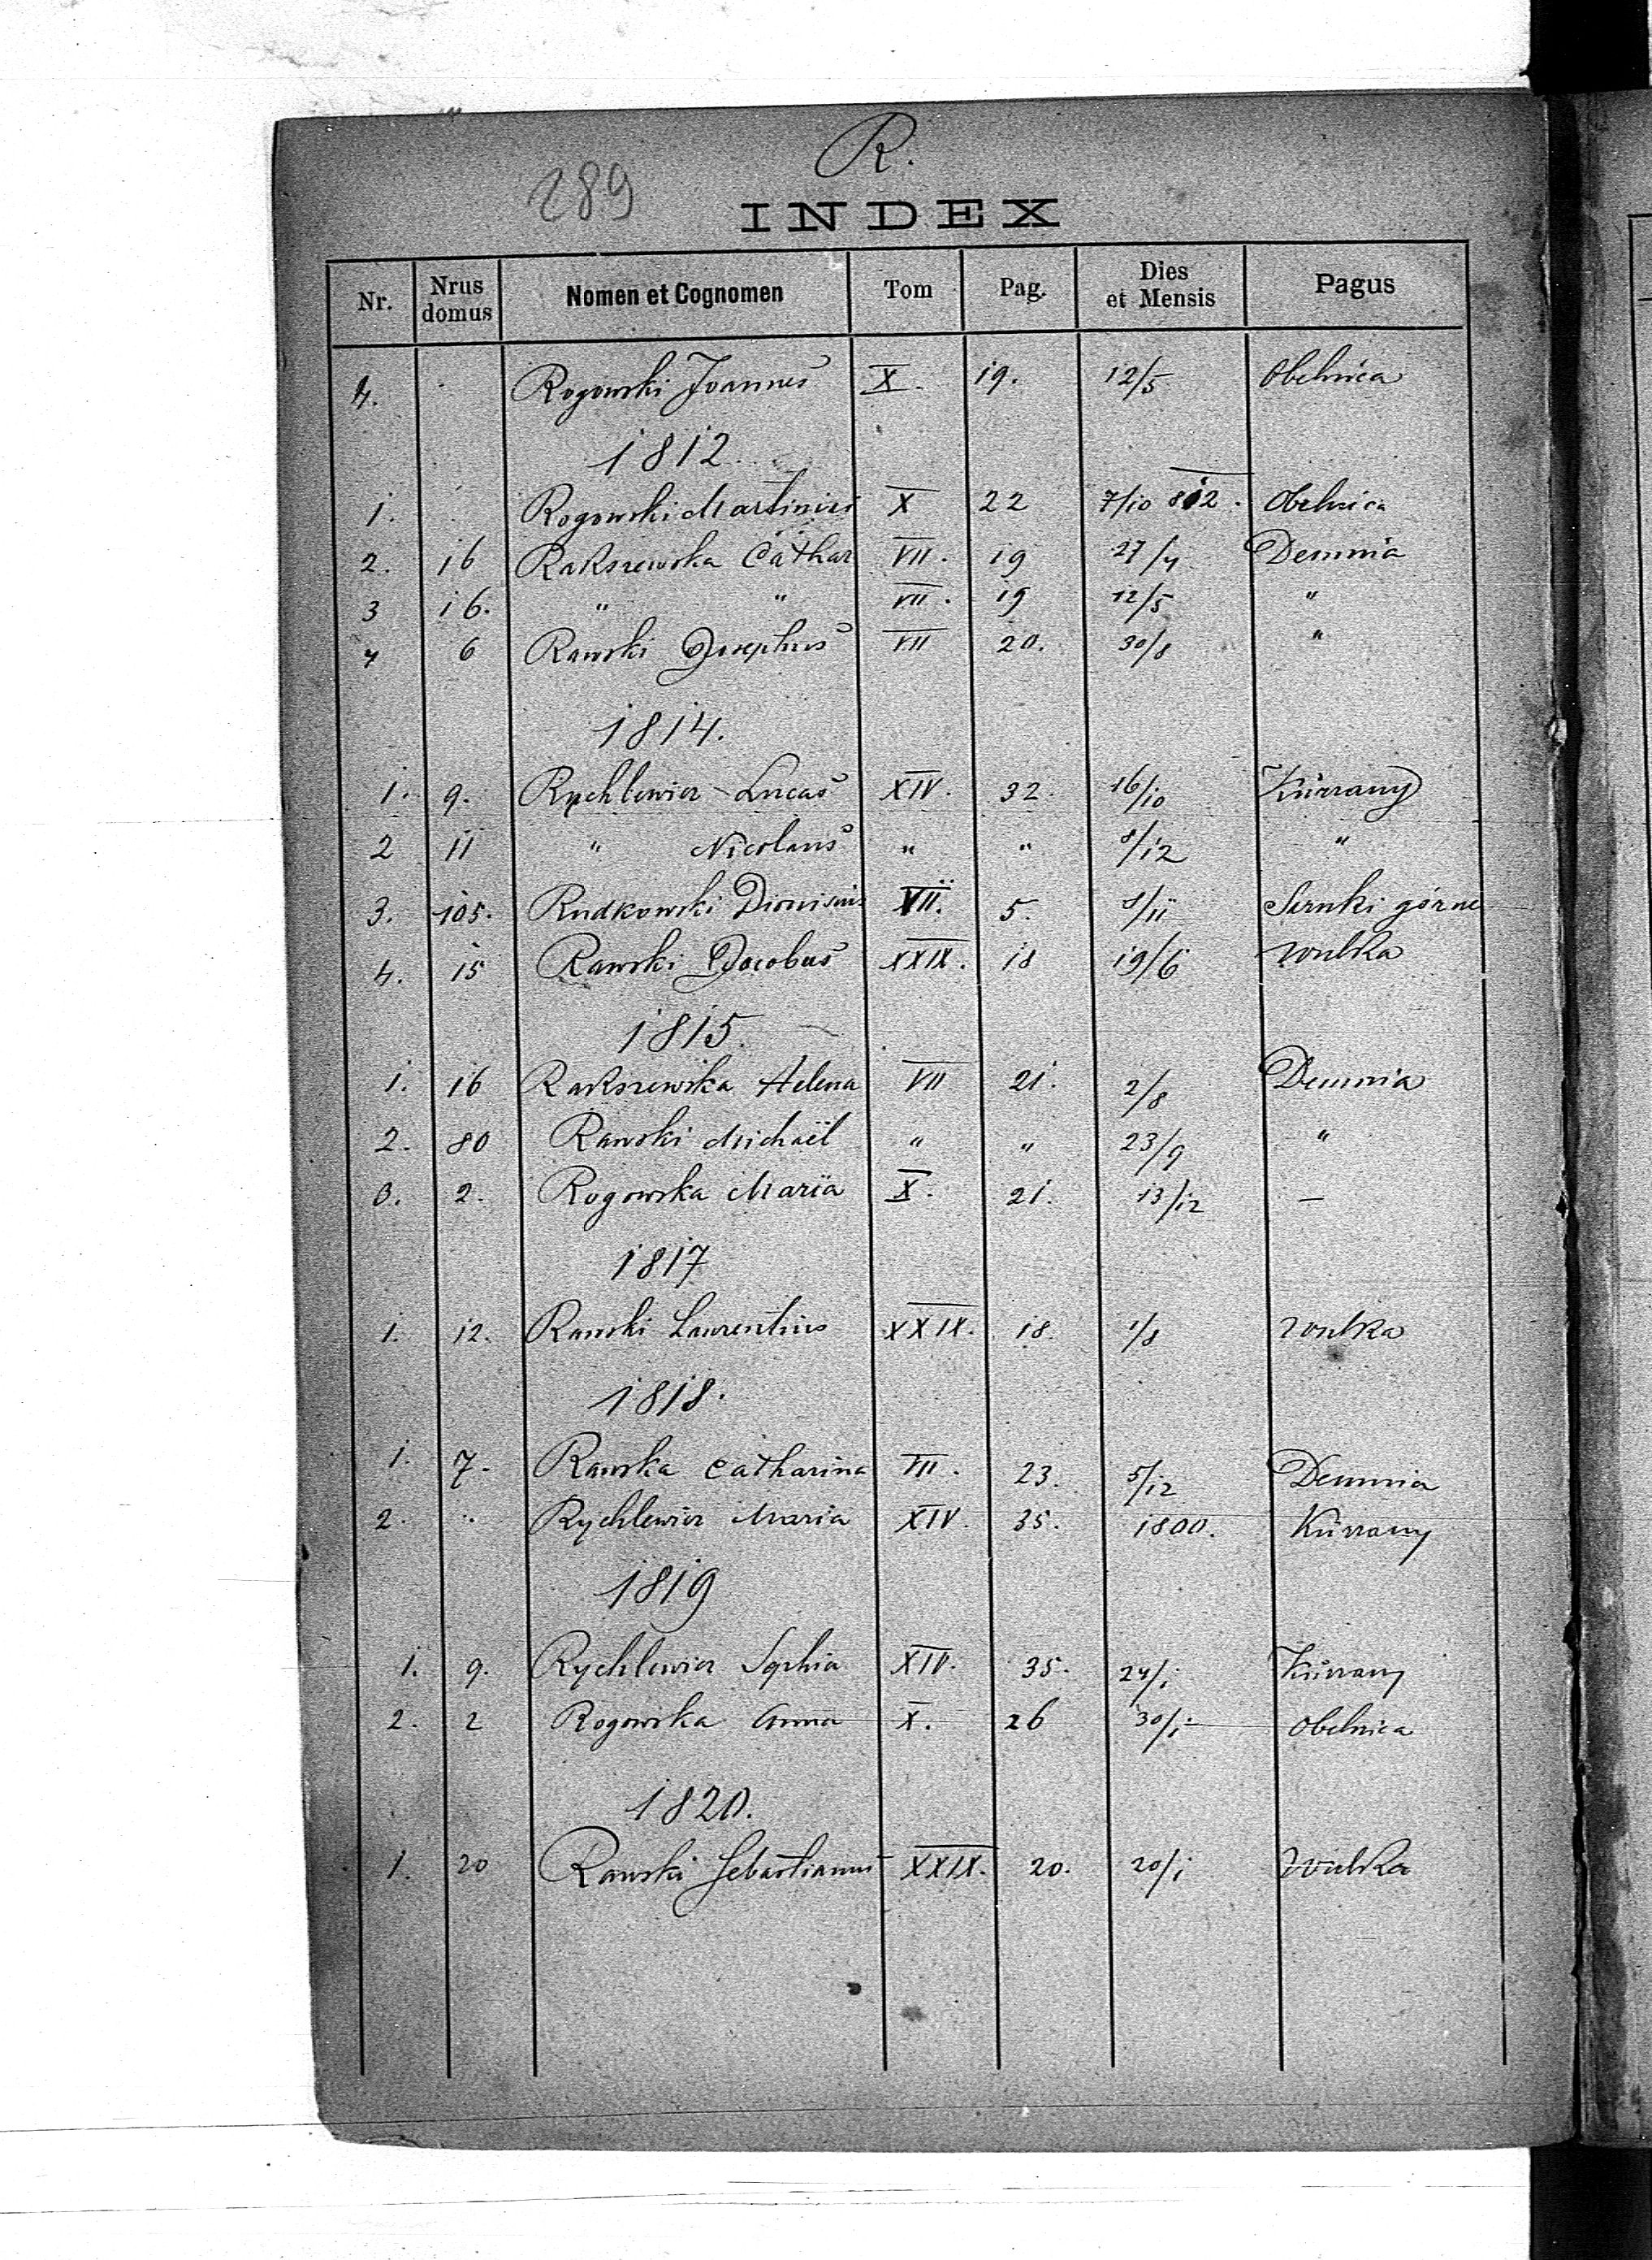 R.
289
INDEX
Nr. Nrus domus Nomen et Cognomen Tom Pag. Dies et Mensis Pagus
4. Rogowski Joannes X. 19. 12/5 Obelnica
1812
1. Rogowski Martinus X 22 7/10 812. Obelnica
2. 16 Rakszewska Cathar VII. 19 27/4 Demnia
3 16. " " VII. 19 12/5 "
4 6 Rawski Josephus VII 20. 30/8 "
1814.
1. 9. Rychlewicz Lucas XIV. 32. 16/10 Kurzany
2 11 " Nicolaus " " 8/12 "
3. 105. Rudkowski Dionisius VII. 5. 8/11 Sarnki górne
4. 15 Rawski Jacobus XXIX. 18 19/6 Wulka
1815.
1. 16 Rakszewska Helena VII 21. 2/8 Demnia
2. 80 Rawski Michaël " " 23/9 "
3. 2. Rogowska Maria X. 21. 13/12 —
1817
1. 12. Rawski Laurentius XXIX. 18. 1/8 Wulka
1818.
1. 7. Rawska Catharina VII. 23. 5/12 Demnia
2. " Rychlewicz Maria XIV. 35. 1800. Kurzany
1819
1. 9. Rychlewicz Sophia XIV. 35. 24/1 Kurzany
2. 2 Rogowska Anna X. 26 30/1 Obelnica
1820.
1. 20 Rawski Sebastianus XXIX. 20. 20/1 Wulka